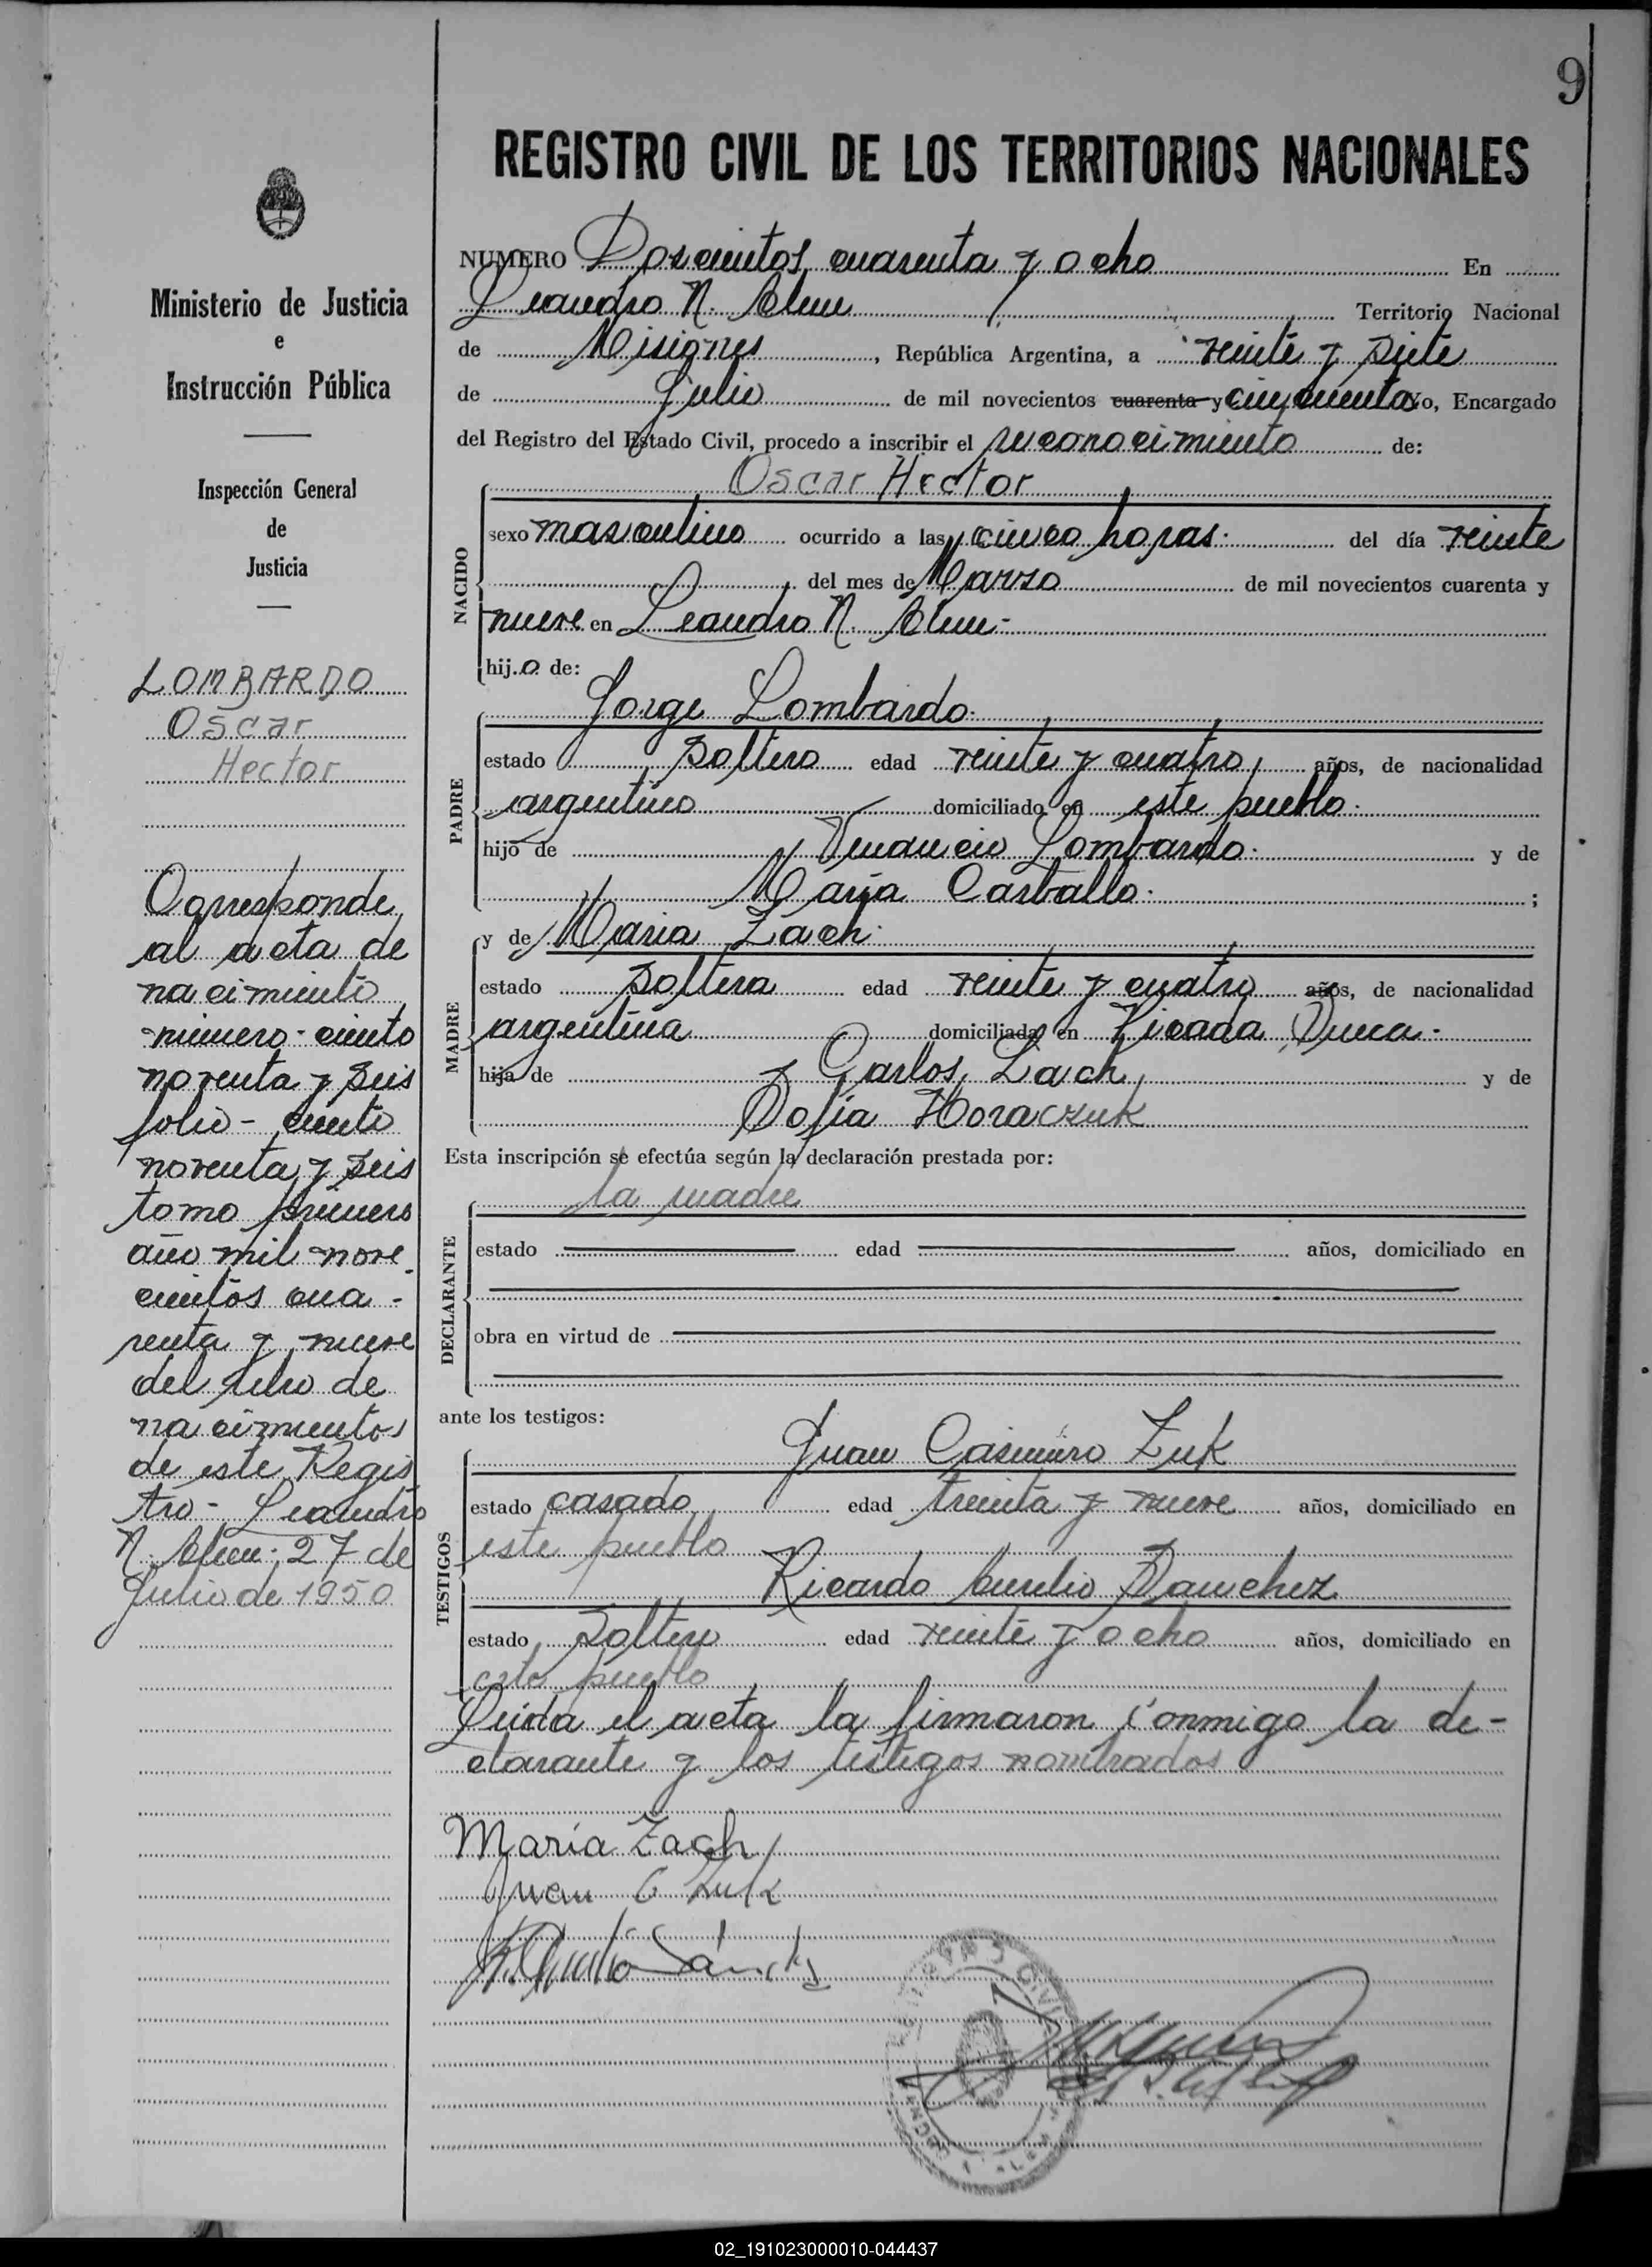 9
REGISTRO CIVIL DE LOS TERRITORIOS NACIONALES
Ministerio de Justicia
e
Instrucción Pública
Inspección General
de
Justicia
LOMBARDO
Oscar
Hector
Corresponde
al acta de
nacimiento
número - ciento
noventa y seis
folio - ciento
noventa y seis
tomo primero
año mil nove
cientos cua -
renta y nueve
del libro de
nacimientos
de este Regis
tro - Leandro
N. Alem; 27 de
Julio de 1950
NUMERO Doscientos cuarenta y ocho En
Leandro N. Alem Territorio Nacional
de Misiones, República Argentina, a veinte y siete
de Julio de mil novecientos cuarenta y cincuenta Yo, Encargado
del Registro del Estado Civil, procedo a inscribir el reconocimiento de:
Oscar Hector
NACIDO
sexo masculino ocurrido a las cinco horas. del día veinte
del mes de Marzo de mil novecientos cuarenta y
nueve en Leandro N. Alem -
hijo de:
Jorge Lombardo.
PADRE
estado soltero edad veinte y cuatro años, de nacionalidad
argentino domiciliado en este pueblo.
hijo de Venancio Lombardo. y de
Maria Carballo. ;
y de Maria Zach.
MADRE
estado soltera edad veinte y cuatro años, de nacionalidad
argentina domiciliada en Picada -
hija de Carlos Zach y de
Sofia Horaczuk
Esta inscripción se efectúa según la declaración prestada por:
la madre
DECLARANTE
estado edad años, domiciliado en
obra en virtud de
ante los testigos:
Juan Casimiro Zuk
TESTIGOS
estado casado edad treinta y nueve años, domiciliado en
este pueblo
Ricardo Aurelio Sanchez
estado soltero edad veinte y ocho años, domiciliado en
este pueblo
Leida el acta la firmaron conmigo la de-
clarante y los testigos nombrados
María Zach
Juan C Zuk
02_191023000010-044437